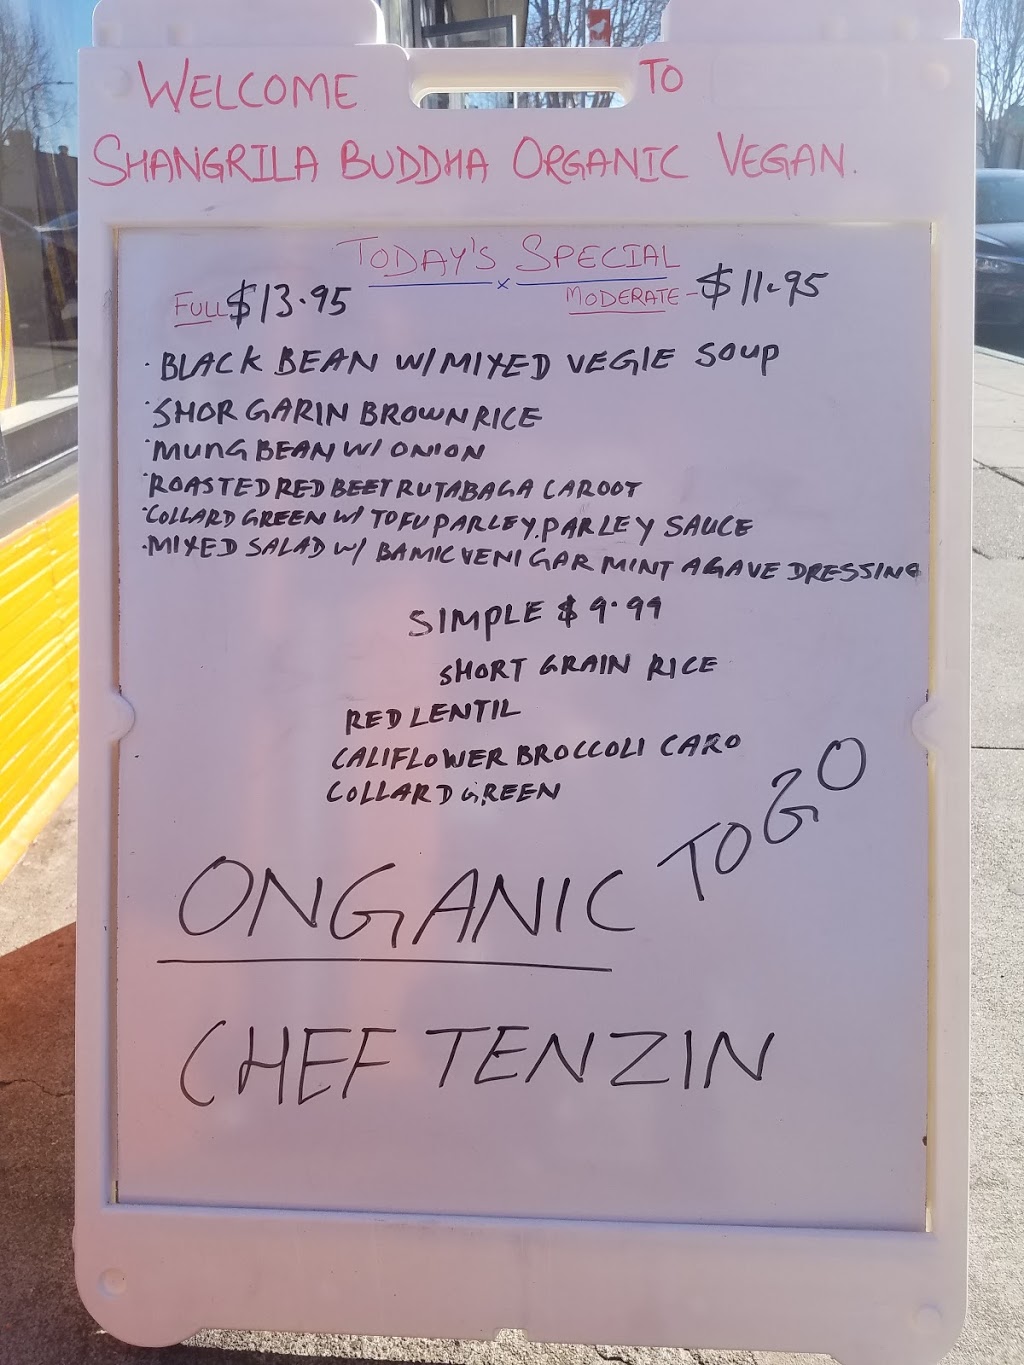 WELCOME TO
SHANGRILA BUDDHA ORGANIC VEGAN.
TODAY'S SPECIAL
FULL $13.95 MODERATE - $11.95
· BLACK BEAN W/ MIXED VEGIE SOUP
· SHOR GARIN BROWN RICE
· MUNG BEAN W/ ONION
· ROASTED RED BEET RUTABAGA CAROOT
· COLLARD GREEN W/ TOFU PARLEY. PARLEY SAUCE
· MIXED SALAD W/ BAMIC VENIGAR MINT AGAVE DRESSING
SIMPLE $9.99
SHORT GRAIN RICE
RED LENTIL
CALIFLOWER BROCCOLI CARO
COLLARD GREEN
ONGANIC TO GO
CHEF TENZIN